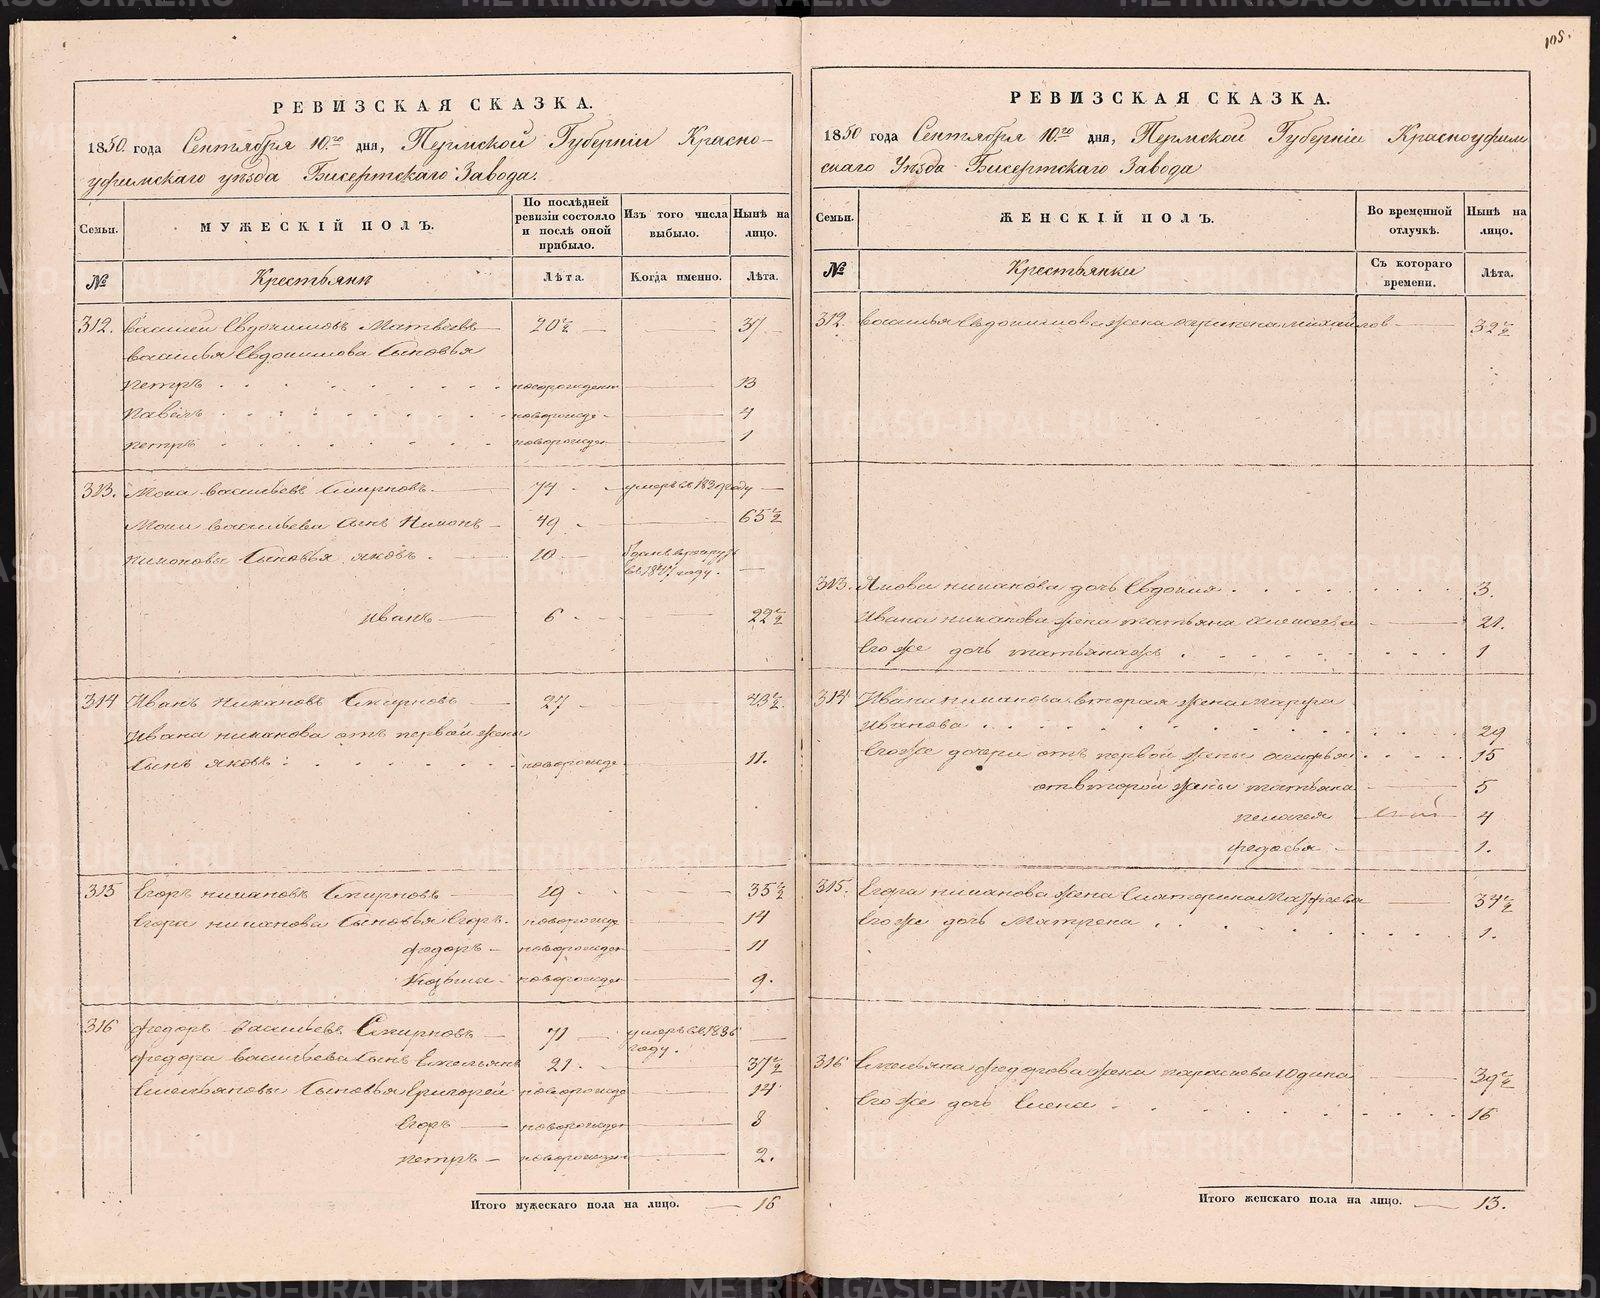 105.
РЕВИЗСКАЯ СКАЗКА.
1850. года Сентября 10.го дня, Пермской Губерніи Красно-
уфимскаго уѣзда Бисертскаго Завода.
Семьи.
МУЖЕСКІЙ ПОЛЪ.
По послѣдней ревизіи состояло и послѣ оной прибыло.
Изъ того числа выбыло.
Нынѣ на лицо.
№
Крестьянъ
Лѣта.
Когда именно.
Лѣта.
312. Василей Евдокимовъ Матвеевъ 20½ 37
Василья Евдокимова Сыновья
петръ новорожден 13
павелъ новорожде 4
петръ новорожден 1
313. Мокей васильевъ Смирновъ 74 умеръ въ 1839 году
васильева сынъ Никонъ 49 65½
Сыновья яковъ 10 в 1847 году.
иванъ 6 22½
314 Иванъ никановъ Смирновъ 27 43½
Ивана никанова отъ первой жены
Сынъ яковъ новорожде 11.
315 Егоръ никановъ Смирновъ 19 35½
Егора никанова Сыновья Егоръ новорожде 14
федоръ новорожден 11
Козьма новорожден 9.
316 федоръ васильевъ Смирновъ 71 умеръ въ 1836 году.
федора васильева сынъ Емельянъ 21 37½
Емельяновы Сыновья Григорей новорожде 14
Егоръ новорожден 8
петръ новорожден 2.
Итого мужескаго пола на лицо. 16
РЕВИЗСКАЯ СКАЗКА.
1850 года Сентября 10.го дня, Пермской Губерніи Красноуфим
скаго Уѣзда Бисертскаго Завода
Семьи.
ЖЕНСКІЙ ПОЛЪ.
Во временной отлучкѣ.
Нынѣ на лицо.
№
Крестьянки
Съ котораго времени.
Лѣта.
312. Василья Евдокимова жена 32½
313. Якова никанова дочь Евдокия 3.
Ивана никанова жена татьяна 21.
Его же дочь татьяна 1
314 Ивана никанова вторая жена
Иванова 29
Его же дочери отъ первой жены 15
от второй жены татьяна 5
пелагея 4
федосья 1.
315. Егора никанова жена Екатерина 34½
Его же дочь Матрена 1.
316 Емельяна федорова жена 39½
Его же дочь Елена 16
Итого женскаго пола на лицо. 13.
METRIKI.GASO-URAL.RU